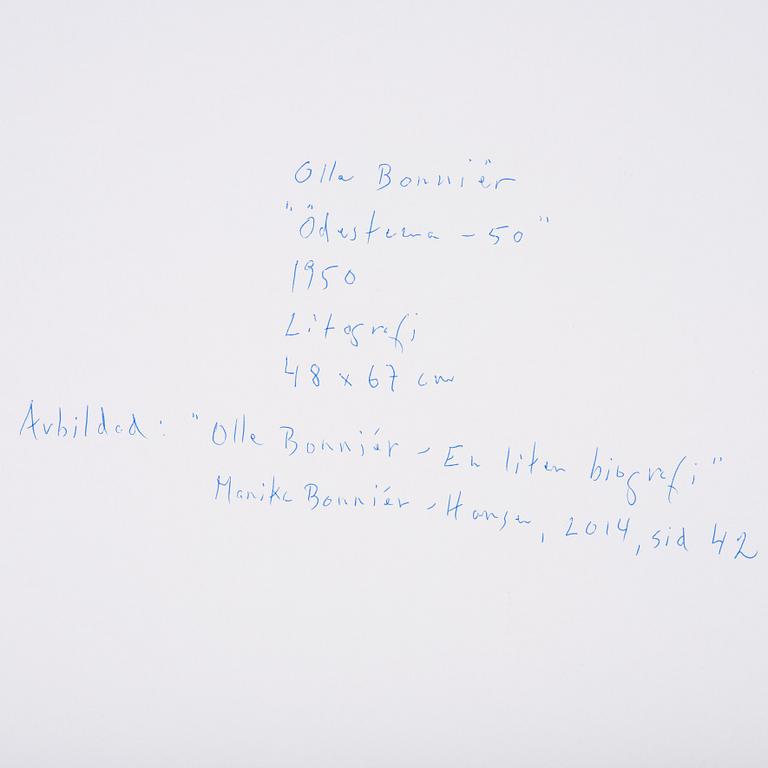 Olle Bonniér
"Ödestema - 50"
1950
Litografi
48 x 67 cm
Avbildad: "Olle Bonniér - En liten biografi"
Monika Bonniér-Hansen, 2014, sid 42